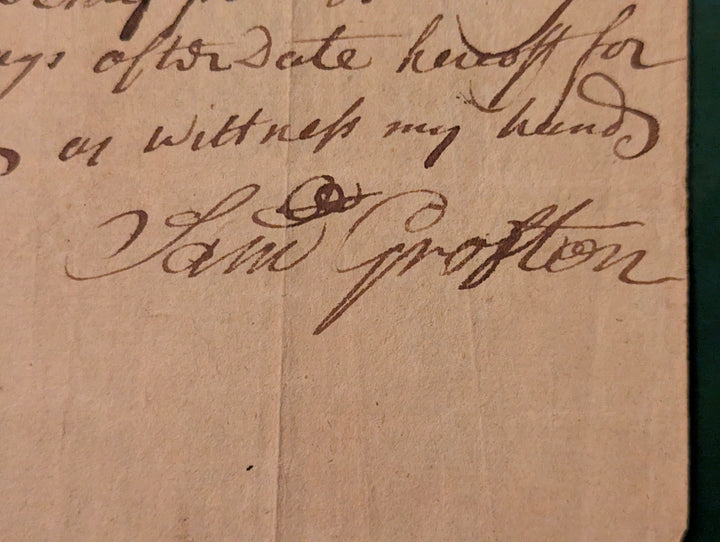 after Date hereoff for
as wittness my hand
Sam Grofton